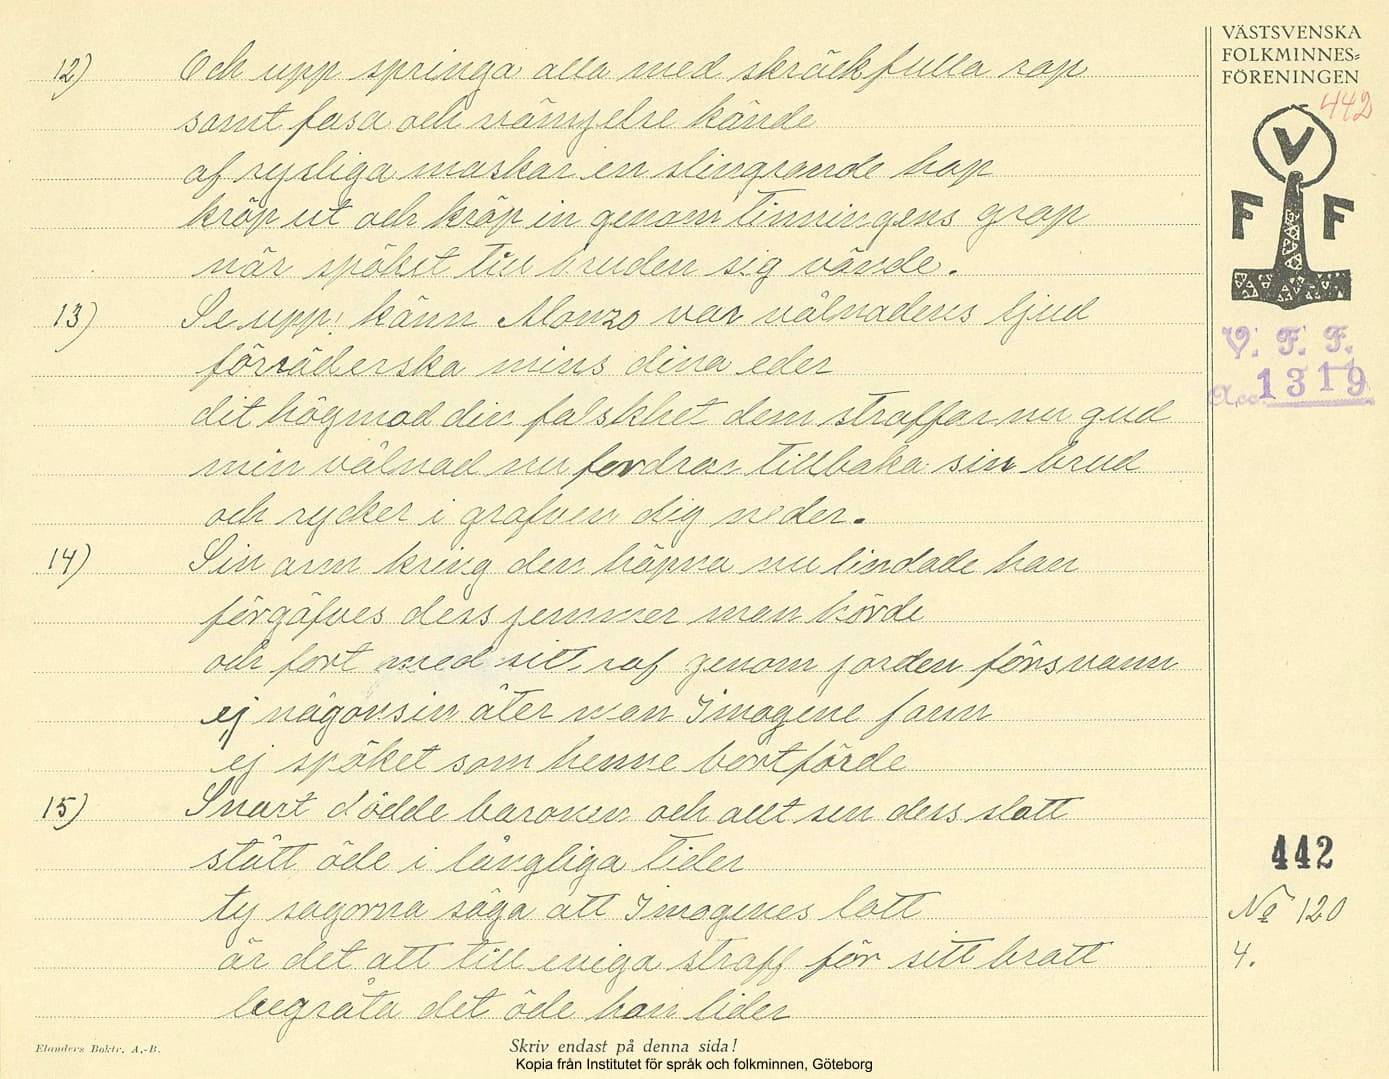 VÄSTSVENSKA
FOLKMINNES=
FÖRENINGEN
442
V
F F
V. F. F.
Acc. 1319
12) Och upp springa alla med skräckfulla rop
samt fasa och vämjelse kände
af rysliga maskar en slingrande hop
kröp ut och kröp in genom tinningens grop
när spöket till bruden sig vände.
13) Se upp! känn Alonzo var vålnadens ljud
förräderska mins dina eder
dit högmod din falskhet dem straffar nu gud
min vålnad nu fordrar tillbaka sin brud
och rycker i grafven dig neder.
14) Sin arm kring den häpna nu lindade han
förgäfves dess jemmer man hörde
och fort med sitt rof genom jorden försvann
ej någonsin åter man Imogene fann
ej spöket som henne bortförde
15) Snart dödde baronen och allt sen dess slott
stått öde i långliga tider
ty sagorna säga att Imogenes lott
är det att till eviga straff för sitt brott
begråta det öde hon lider
442
No 120
4.
Elanders Boktr. A.-B.
Skriv endast på denna sida!
Kopia från Institutet för språk och folkminnen, Göteborg